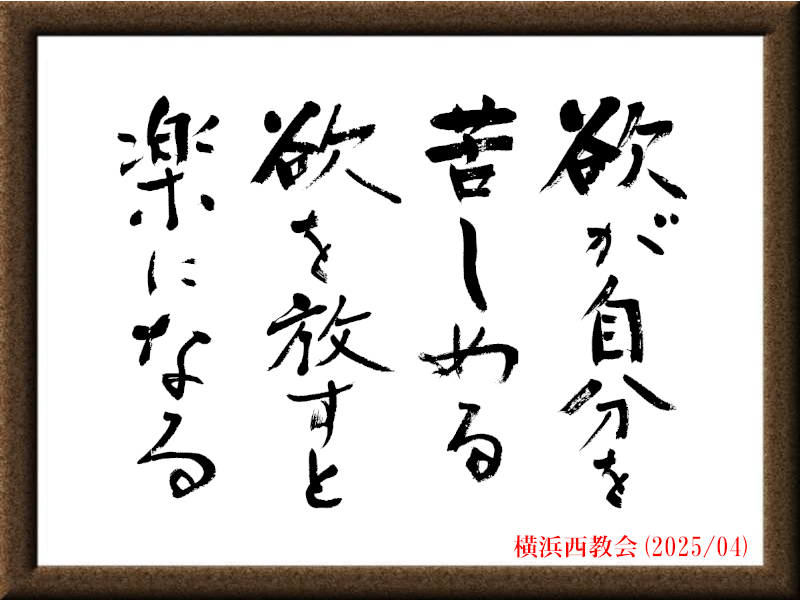 欲が自分を
苦しめる
欲を放すと
楽になる
横浜西教会(2025/04)